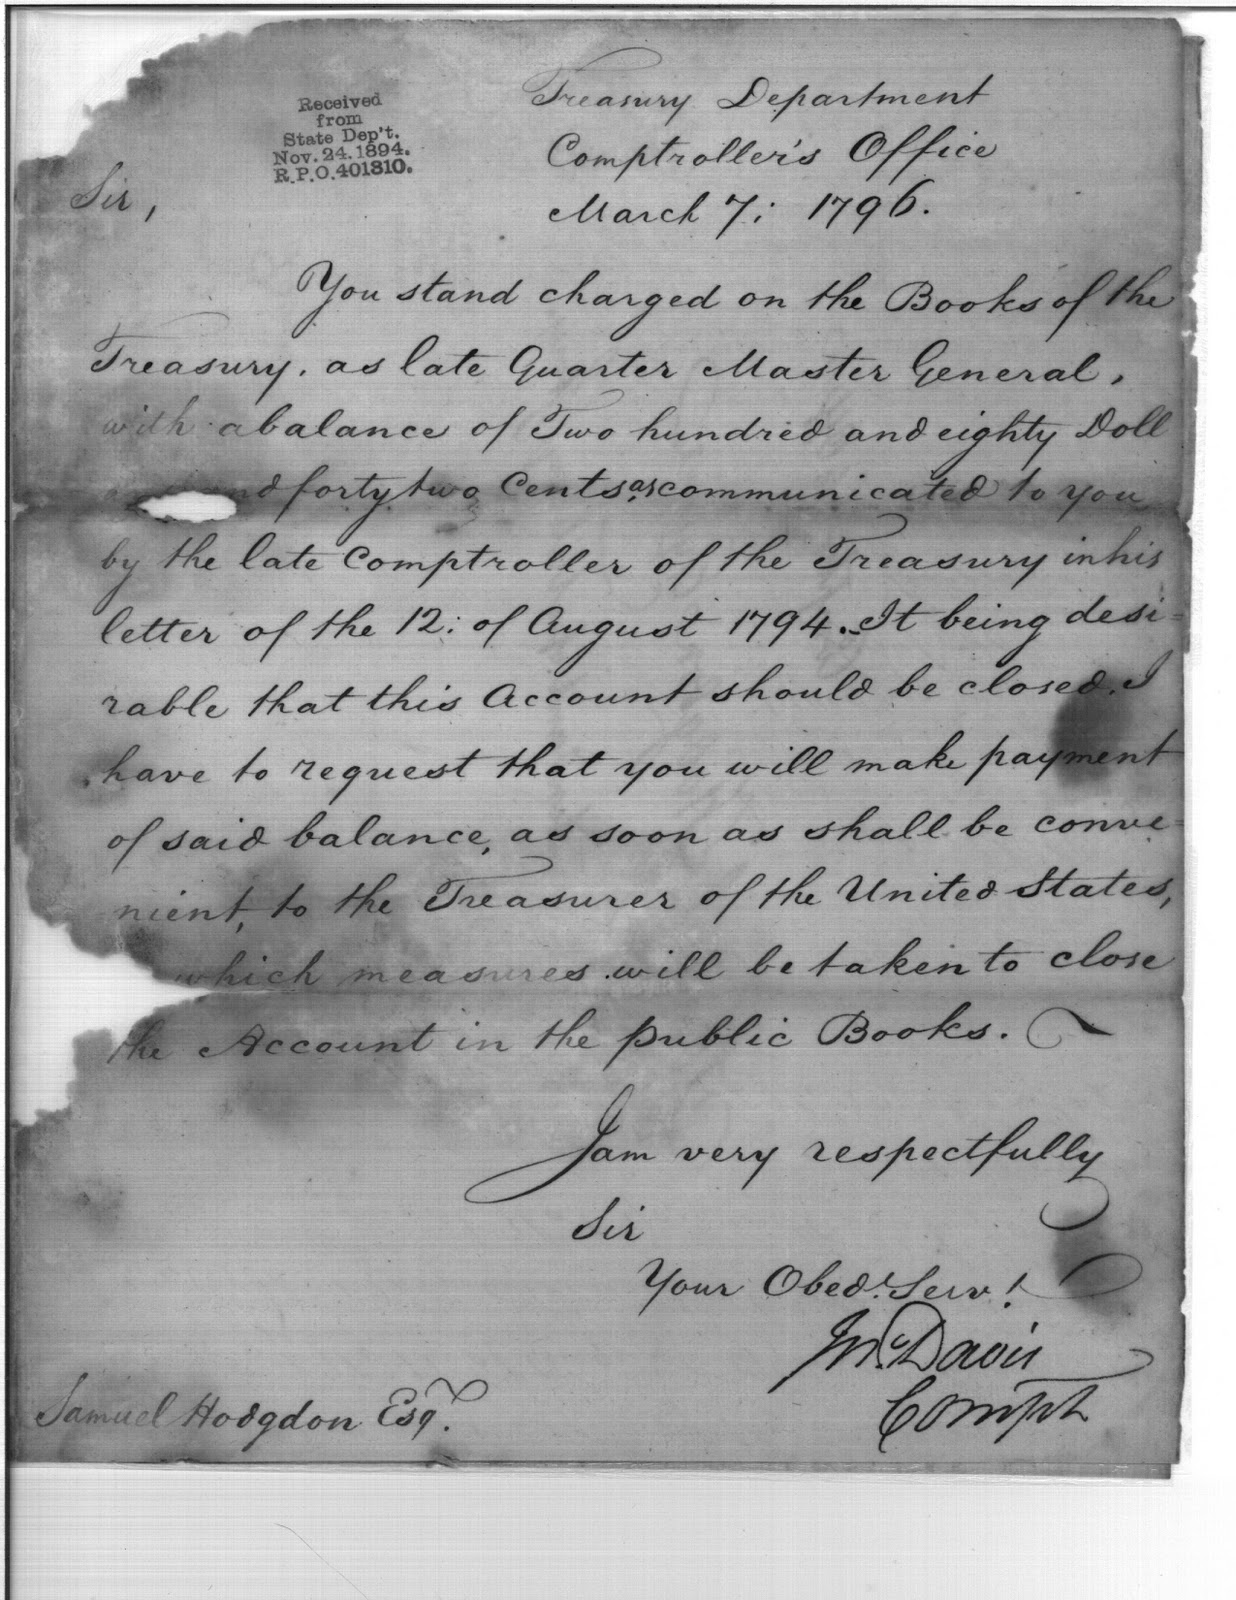 Received
from
State Dep't.
Nov. 24. 1894.
R.P.O. 401310.
Treasury Department
Comptroller's Office
March 7: 1796.
Sir,
You stand charged on the Books of the
Treasury, as late Quarter Master General,
with a balance of Two hundred and eighty Doll
nd forty two Cents, as communicated to you
by the late Comptroller of the Treasury in his
letter of the 12: of August 1794. It being desi-
rable that this Account should be closed. I
have to request that you will make payment
of said balance, as soon as shall be conve-
nient, to the Treasurer of the United States,
which measures will be taken to close
the Account in the public Books.
I am very respectfully
Sir
Your Obed.t Serv.t
Jn.o Davis
Compt
Samuel Hodgdon Esq.r